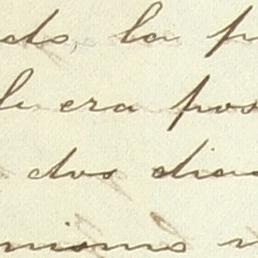 do, la p
le era pos
dos dias
mismo